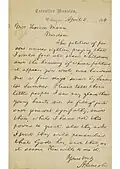 Executive Mansion,
Washington, April 5, 1864
Mrs Horace Mann,
Madam,
The petition of per-
sons under eighteen, praying that I
would free all slave children,
and the heading of which petition
it appears you wrote, was handed
me a few days since by Sena-
tor Sumner. Please tell these
little people I am very glad their
young hearts are so full of just
and generous sympathy, and
that, while I have not the
power to grant all they ask,
I trust they will remember
that God has, and that, as
it seems, He wills to do it.
Yours truly
A. Lincoln